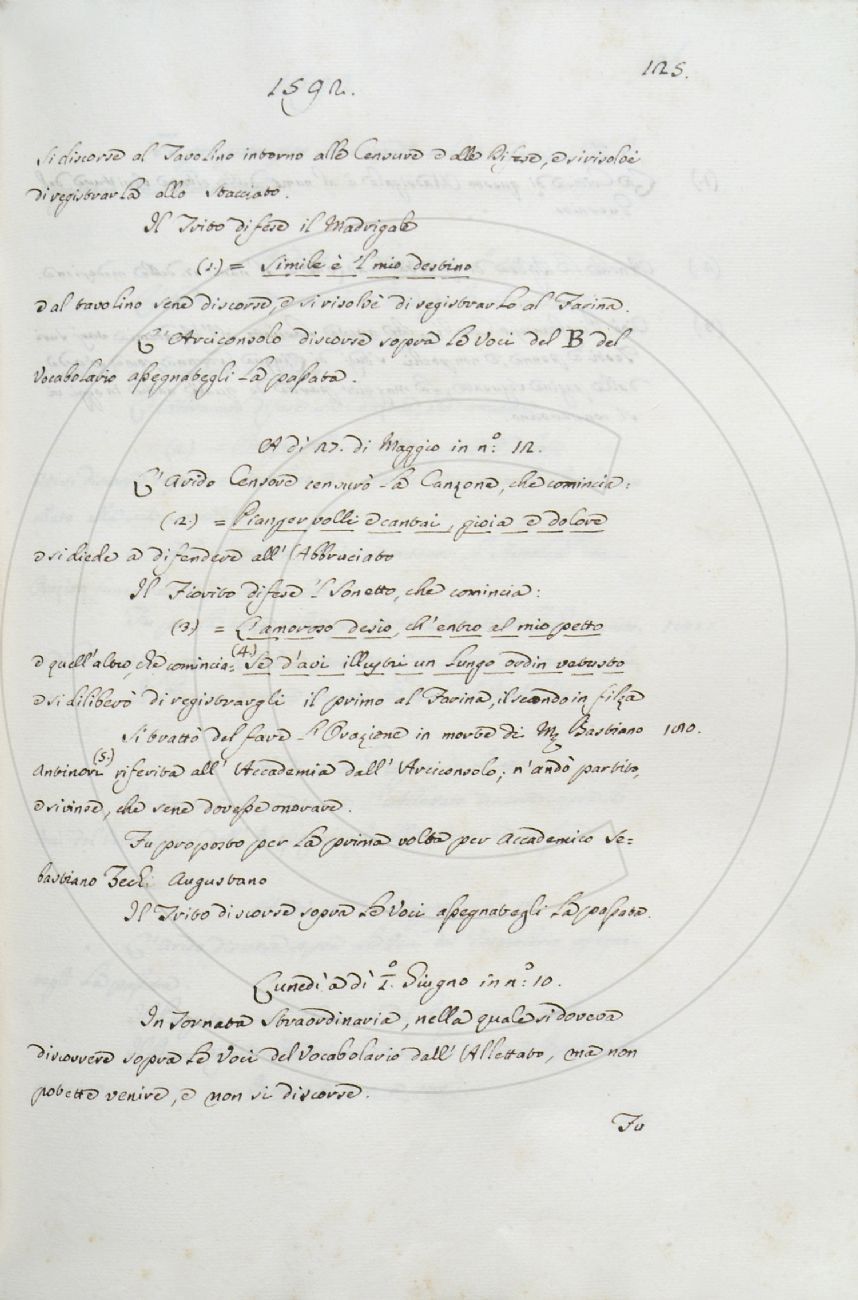 125.
1592.
Si discorse al Tavolino intorno alle Censure e alle Difese, e si risolvè
di registrarla allo Stacciato.
Il Trito difese il Madrigale
(1.) = Simile è 'l mio destino
e al tavolino sene discorse, e si risolvè di registrarlo al Farina.
L'Arciconsolo discorse sopra le Voci del B del
Vocabolario assegnategli la passata.
A dì 27. di Maggio in n.º 12.
L'Arido Censore censurò la Canzone, che comincia:
(2.) = Pianger volli e cantai, gioia e dolore
e si diede a difendere all'Abbruciato
Il Fiorito difese 'l Sonetto, che comincia:
(3.) = L'amoroso desio, ch'entro al mio petto
e quell'altro, che comincia = (4.) Se d'avi illustri un lungo ordin vetusto
e si diliberò di registrargli il primo al Farina, il secondo in filza
Si trattò del fare l'Orazione in morte di M. Bastiano
Antinori (5.) riferita all'Accademia dall'Arciconsolo; n'andò partito,
e si vinse, che sene dovesse onorare.
Fu proposto per la prima volta per Accademico Se=
bastiano Zech: Augustano
Il Trito discorse sopra le Voci assegnategli la passata.
Lunedì a dì I.º Giugno in n.º 10.
In Tornata Straordinaria, nella quale si doveva
discorrere sopra le Voci del Vocabolario dall'Allettato, ma non
potette venire, e non si discorse.
Fu